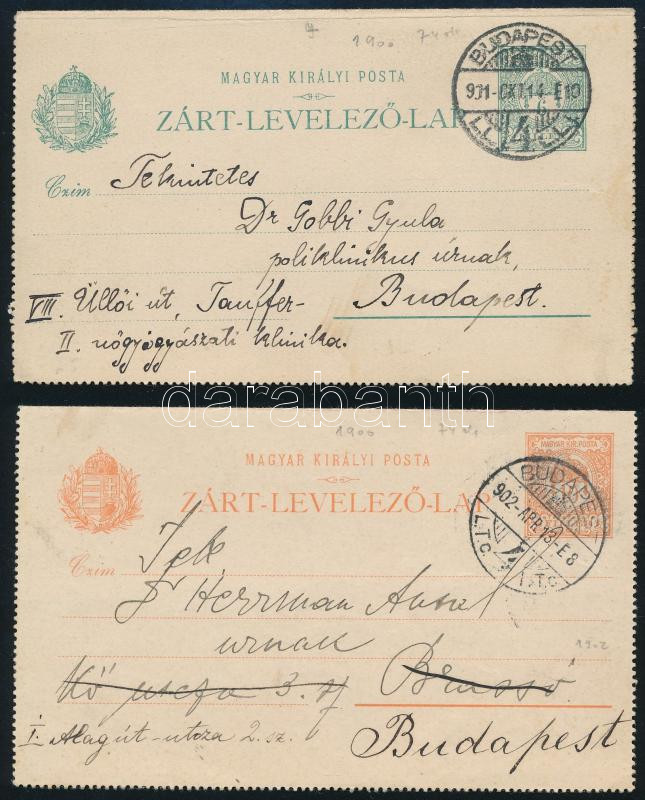 1900 74
MAGYAR KIRÁLYI POSTA
ZÁRT-LEVELEZŐ-LAP
BUDAPEST
901-OKT14-E10
Czim
Tekintetes
Dr Gobbi Gyula
poliklinikus úrnak,
VIII. Üllői út, Tauffer- Budapest.
II. nőgyógyászati klinika.
darabanth
1900 74
MAGYAR KIRÁLYI POSTA
ZÁRT-LEVELEZŐ-LAP
MAGYAR KIR. POSTA
BUDAPEST
902-APR13-E8
I.T.C. I.T.C
Czim
Herrman Antal
urnak
1902
utcza 3. Brassó
I. Alagút-utcza 2. sz. Budapest